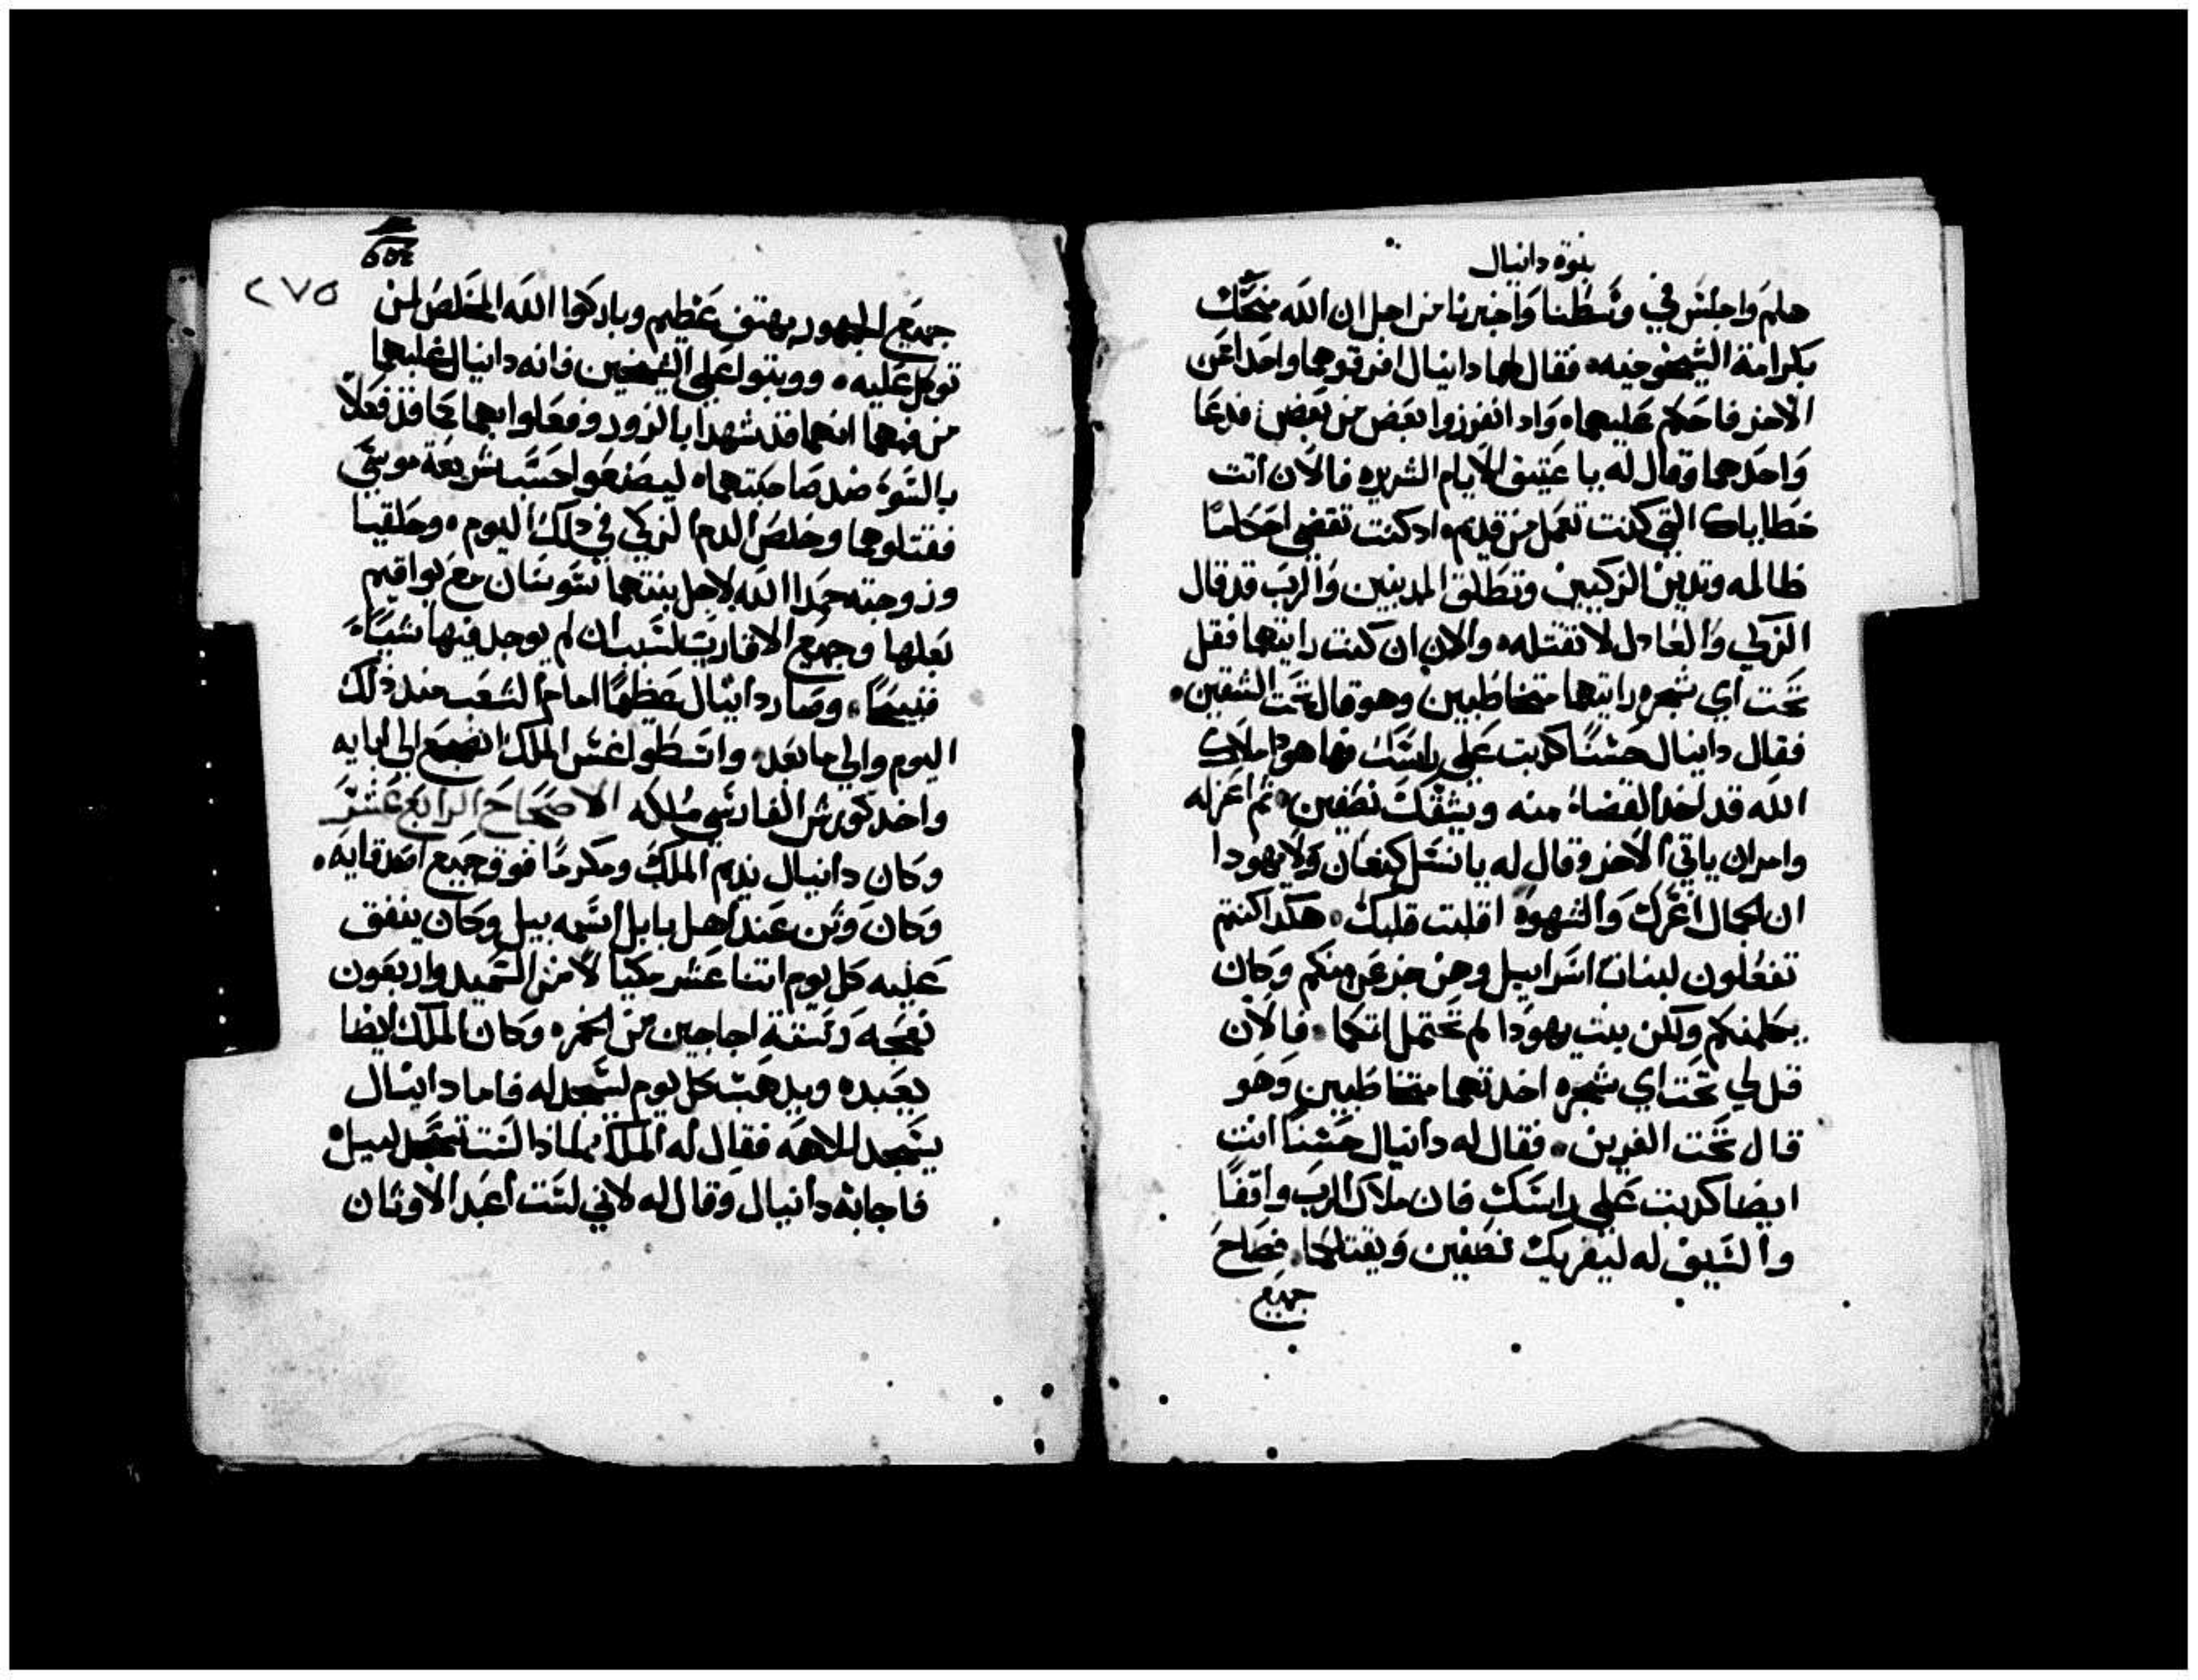 نبوة دانيال
هلم واجلس في وسطنا واخبرنا من اجل ان الله منحك
بكرامة الشيخوخيه فقال لهما دانيال افرقوهما واحدا عن
الاخر فاحكم عليهما واد انفرزوا بعض من بعض فدعا
واحدهما وقال له يا عتيق الايام الشريره فالان اتت
خطاياك التي كنت تعمل من قديم وادكنت تقضي احكاما
ظالمه وتدين الزكيين وتطلق المدنبين والرب قد قال
الزكي والعادل لا تقتله والان ان كنت رايتهما فقل
تحت اي شجره رايتهما متخاطبين وهو قال تحت الشقين
فقال دانيال حسنا كدبت علي راسك فها هودا ملاك
الله قد اخد القضاء منه ويشقك نصفين ثم اعزله
وامر ان ياتي الاخر وقال له يا نسل كنعان ولا يهودا
ان الجمال اغرك والشهوه اقلبت قلبك هكدا كنتم
تفعلون لبنات اسراييل وهن جزعن منكم وكان
يكلمنكم ولكن بنت يهودا لم تحتمل اتمكما فالان
قل لي تحت اي شجره اخدتهما متخاطبين وهو
قال تحت الفرين فقال له دانيال حسنا انت
ايضا كدبت علي راسك فان ملاك الرب واقفا
والسيف له ليفريك نصفين ويقتلكما فصاح
جميع
٢٧٥
جميع الجمهور بهتف عظيم وباركوا الله المخلص لمن
توكل عليه ووبتوا علي الشيخين فانه دانيال غلبهما
من فمهما انهما قد شهدا بالزور وفعلوا بهما كما قد فعلا
بالسوء ضد صاحبتهما ليصنعوا حسب شريعة موسي
فقتلوهما وخلص الدم الزكي في دلك اليوم وحلقيا
وزوجته حمدا الله لاجل بنتهما سوسان مع يواقيم
بعلها وجميع الاقارب لسبب ان لم يوجد فيها شياء
قبيحا وصار دانيال عظيما امام الشعب مند دلك
اليوم والي ما بعد واسطولغس الملك انضجع الي ابايه
واخد كورش الفارسي ملكه الاصحاح الرابع عشر
وكان دانيال نديم الملك ومكرما فوق جميع اصدقايه
وكان وتن عند اهل بابل اسمه بيل وكان ينفق
عليه كل يوم اتنا عشر مكيالا من السميد واربعون
نعجه وستة اجاجين من الخمره وكان الملك ايضا
يعبده ويدهب كل يوم لسجد له فاما دانيال
يسجد لالاهه فقال له الملك لمادا لست تسجد لبيل
فاجابه دانيال وقال له لاني لست اعبد الاوثان